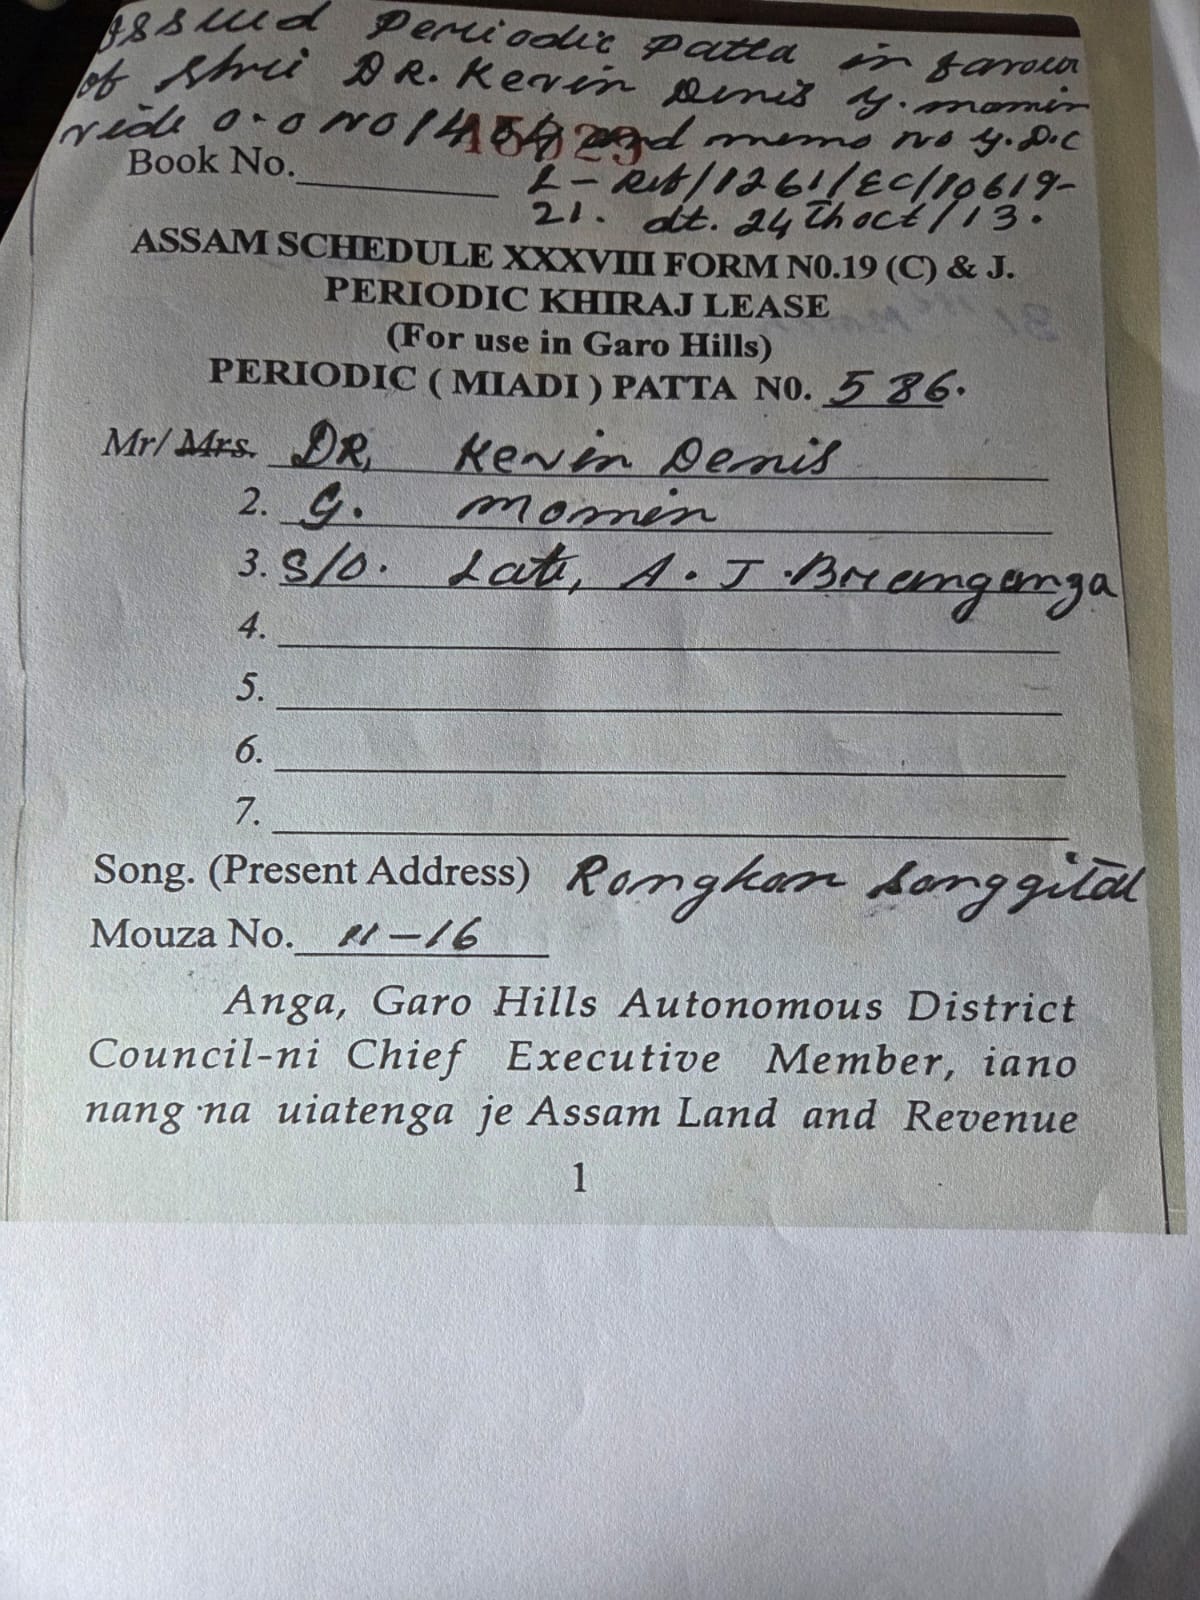 Issued Periodic Patta in favour
of Shri DR. Kevin Denis G. Momin
vide O.O NO 1464 and memo no G.D.C
15029
Book No.
L-Reb/1261/EC/10619-
21. dt. 24th oct/13.
ASSAM SCHEDULE XXXVIII FORM N0.19 (C) & J.
PERIODIC KHIRAJ LEASE
(For use in Garo Hills)
PERIODIC ( MIADI ) PATTA N0. 586.
Mr/ Mrs. DR, Kevin Denis
2. G. Momin
3. S/O. Late, A. J. Brengenga
4.
5.
6.
7.
Song. (Present Address) Rongkon Songgital
Mouza No. 11-16
Anga, Garo Hills Autonomous District
Council-ni Chief Executive Member, iano
nang·na uiatenga je Assam Land and Revenue
1